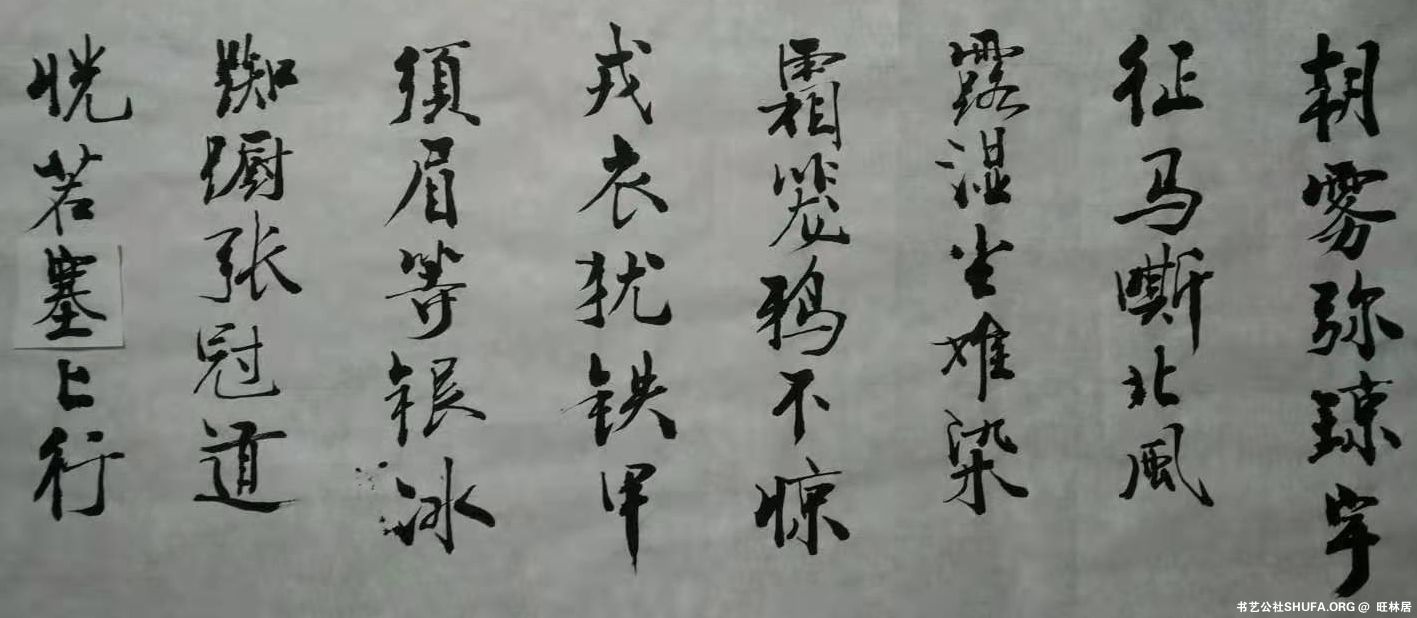 朝雾弥琼宇
征马嘶北風
露湿尘难染
霜笼鸦不惊
戎衣犹铁甲
須眉等银冰
踟蹰张冠道
恍若塞上行
书艺公社SHUFA.ORG @ 旺林居